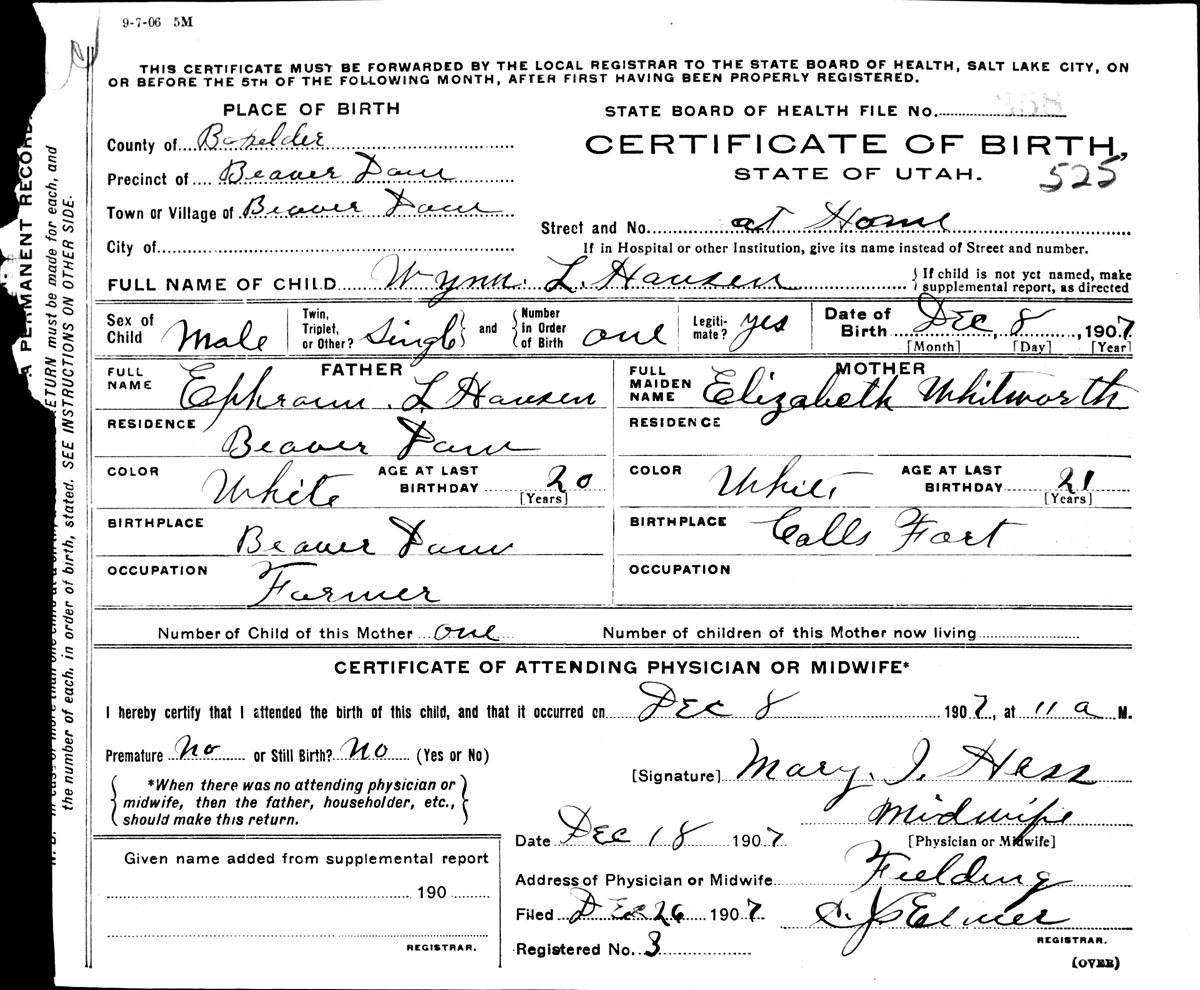 9-7-06 5M
THIS CERTIFICATE MUST BE FORWARDED BY THE LOCAL REGISTRAR TO THE STATE BOARD OF HEALTH, SALT LAKE CITY, ON
OR BEFORE THE 5TH OF THE FOLLOWING MONTH, AFTER FIRST HAVING BEEN PROPERLY REGISTERED.
PLACE OF BIRTH
STATE BOARD OF HEALTH FILE No.
County of Boxelder
CERTIFICATE OF BIRTH,
Precinct of Beaver Dam
STATE OF UTAH.
525
Town or Village of Beaver Dam
Street and No. at Home
City of
If in Hospital or other Institution, give its name instead of Street and number.
FULL NAME OF CHILD Wynn L. Hansen
{If child is not yet named, make
supplemental report, as directed
Sex of Child Male
Twin, Triplet, or Other? Singl} and {Number In Order of Birth one
Legiti-mate? yes
Date of Birth Dec 8, 1907
[Month] [Day] [Year]
FATHER
FULL NAME Ephraim L Hansen
RESIDENCE Beaver Dam
COLOR White AGE AT LAST BIRTHDAY 20
[Years]
BIRTHPLACE Beaver Dam
OCCUPATION Farmer
MOTHER
FULL MAIDEN NAME Elizabeth Whitworth
RESIDENCE
COLOR White AGE AT LAST BIRTHDAY 21
[Years]
BIRTHPLACE Calls Fort
OCCUPATION
Number of Child of this Mother one Number of children of this Mother now living
CERTIFICATE OF ATTENDING PHYSICIAN OR MIDWIFE*
I hereby certify that I attended the birth of this child, and that it occurred on Dec 8 1907, at 11 a M.
Premature No or Still Birth? No (Yes or No)
{*When there was no attending physician or
midwife, then the father, householder, etc.,
should make this return.}
[Signature] Mary. J. Hess
Midwife
[Physician or Midwife]
Date Dec 18 1907
Address of Physician or Midwife Fielding
Filed Dec 26 1907. C. J. Elmer
REGISTRAR.
Registered No. 3
(OVER)
Given name added from supplemental report
190
REGISTRAR.
A PERMANENT RECORD.
RETURN must be made for each, and
the number of each, in order of birth, stated. SEE INSTRUCTIONS ON OTHER SIDE.